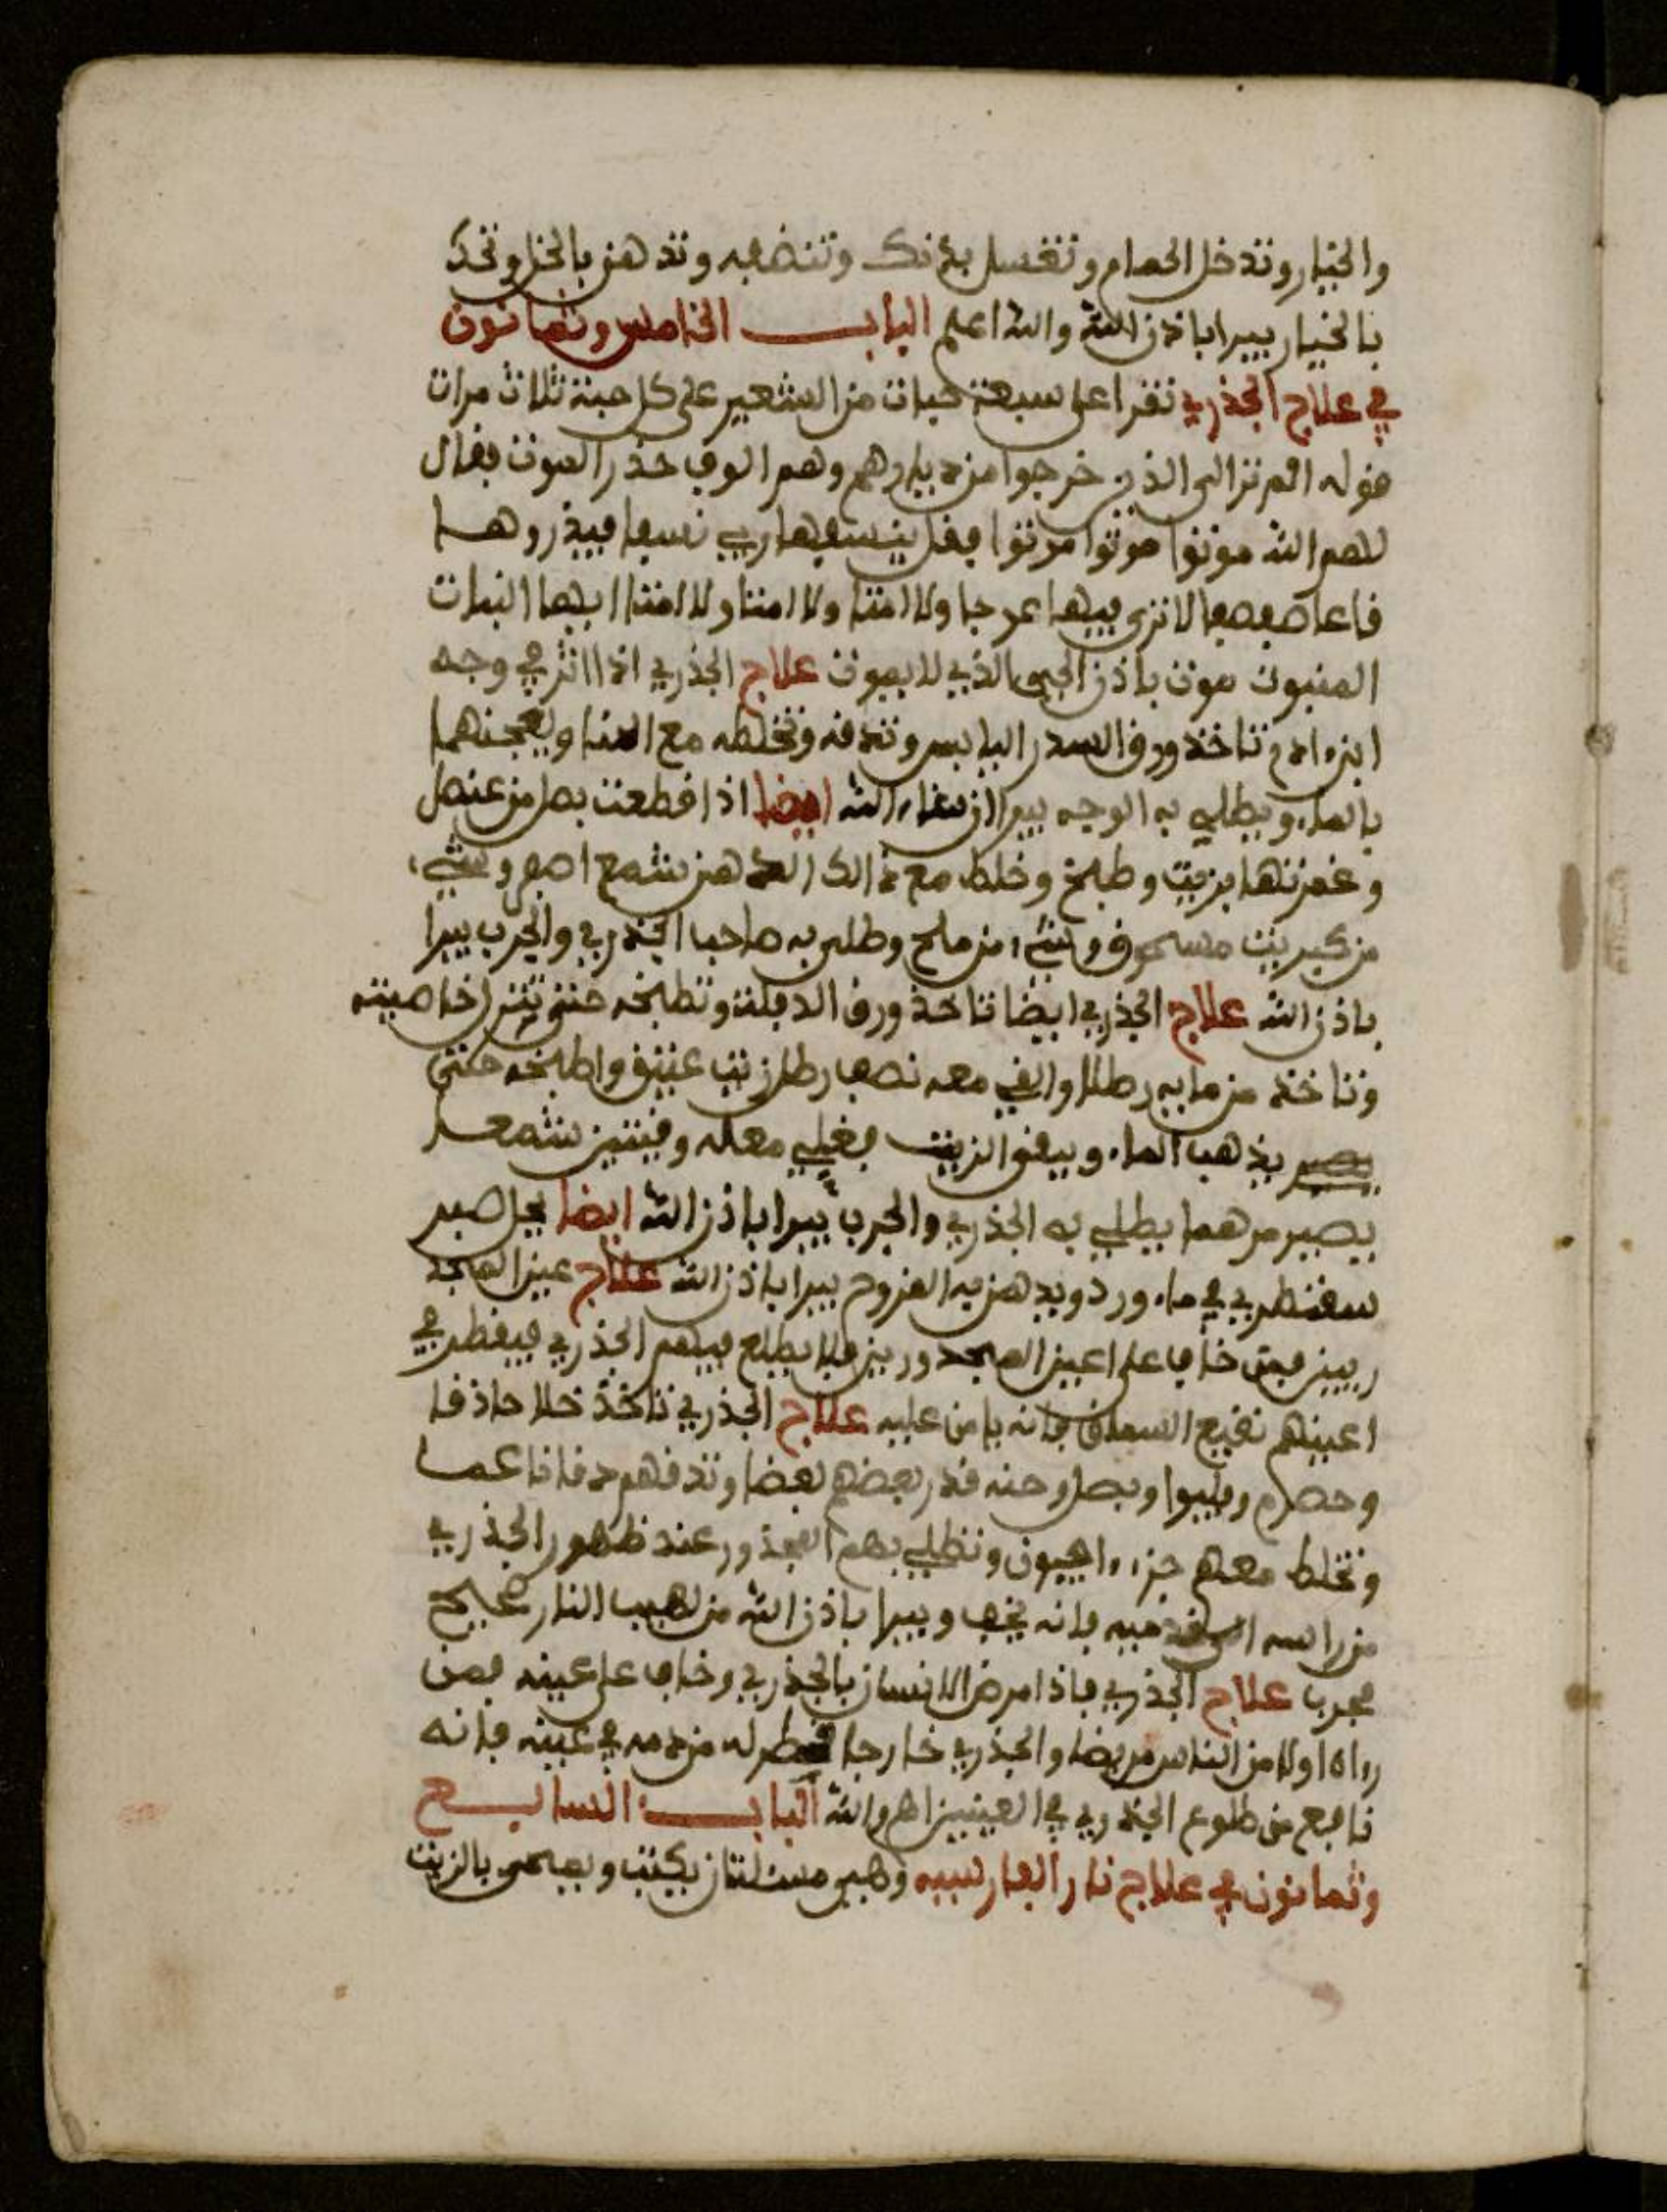 والخيار وتدخل الحمام وتغسل بدنك وتنضفه وتدهن بالخل وتحك
بالخيار يبرا باذن الله والله اعلم البـاب الخامس وثمانون
في علاج الجذري تقرا على سبعة حبات من الشعير على كل حبة ثلاث مرات
قوله الم تر الى الذين خرجوا من ديارهم وهم الوف حذر الموت فقال
لهم الله موتوا موتوا موتوا فقل ينسفها ربي نسفا فيذروها
قاعا صفصفا لا ترى فيها عوجا ولا امتا ولا امتا ولا امتا ايها النبات
المنبوت موت باذن الحي الذي لا يموت علاج الجذري اذا اثر في وجه
ابن ءادم تاخذ ورق السدر اليابس وتدقه وتخلطه مع الحنا ويعجنهما
بالماء ويطلي به الوجه يبرا ان شاء الله ايضا اذا قطعت بصل من عنصل
وغمرتها بزيت وطبخ وخلط مع ذالك الدهن شمع اصفر وشيء
من كبريت مسحوق وشيء من ملح وطلى به صاحب الجذري والجرب يبرا
باذن الله علاج الجذري ايضا تاخذ ورق الدفلة وتطبخه حتى تتر خاصيته
وتاخذ من مايه رطلا والقي معه نصف رطل زيت عتيق واطبخه حتى
يصير يذهب الماء ويبقى الزيت فغلي معه وقيتين شمعـ
يصير مرهما يطلي به الجذري والجرب يبرا باذن الله ايضا يحل صبر
سقطري في ماء ورد ويدهن به القروح يبرا باذن الله علاج عين المجد
ريين فمن خاف على اعين المجدورين فلا يطلع فيهم الجذري فيقطر في
اعينهم نقيع السماق فانه يامن عليه علاج الجذري تاخذ خلا حاذقا
وحصرم وبصل وحنه قدر بعضهم بعضا وتدقهم دقا ناعما
وتخلط معهم جزء افيون وتطلي بهم المجذور عند ظهور الجذري
من راسه الى قدميه فانه يخف ويبرا باذن الله من لهيب النار صحيح
مجرب علاج الجذري فاذا مرض الانسان بالجذري وخاف على عينه فمن
رءاه اولا من الناس مريضا والجذري خارجا قطر له من دمه في عينه فانه
نافع من طلوع الجذري في العينين اهـ والله البـاب السابـع
وثمانون في علاج نار الفارسيه وهي مسئلتان يكتب ويمحى بالزيت